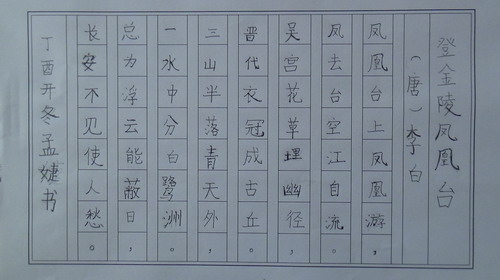 登金陵凤凰台
（唐）李白
凤凰台上凤凰游，
凤去台空江自流。
吴宫花草埋幽径，
晋代衣冠成古丘。
三山半落青天外，
一水中分白鹭洲。
总为浮云能蔽日，
长安不见使人愁。
丁酉开冬孟婕书